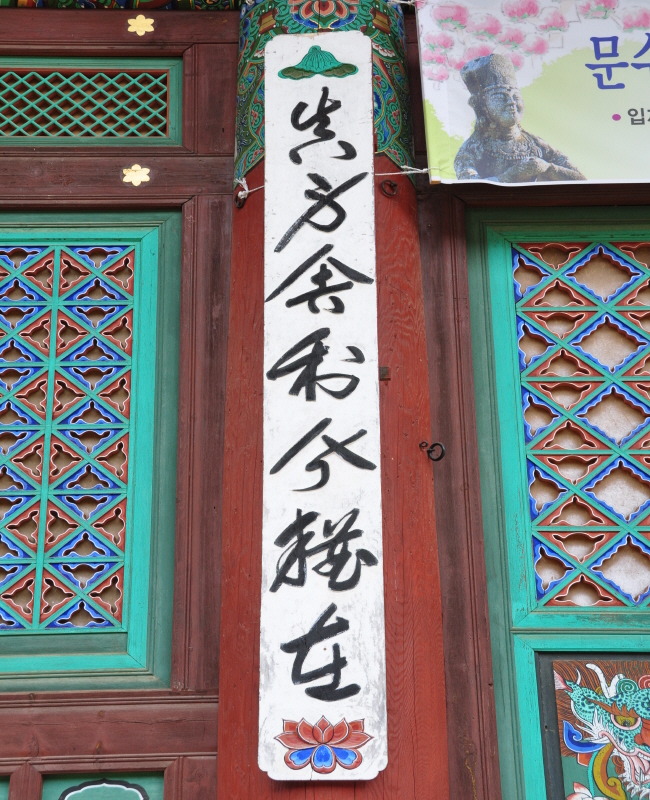 真身舍利今猶在
문수
• 입